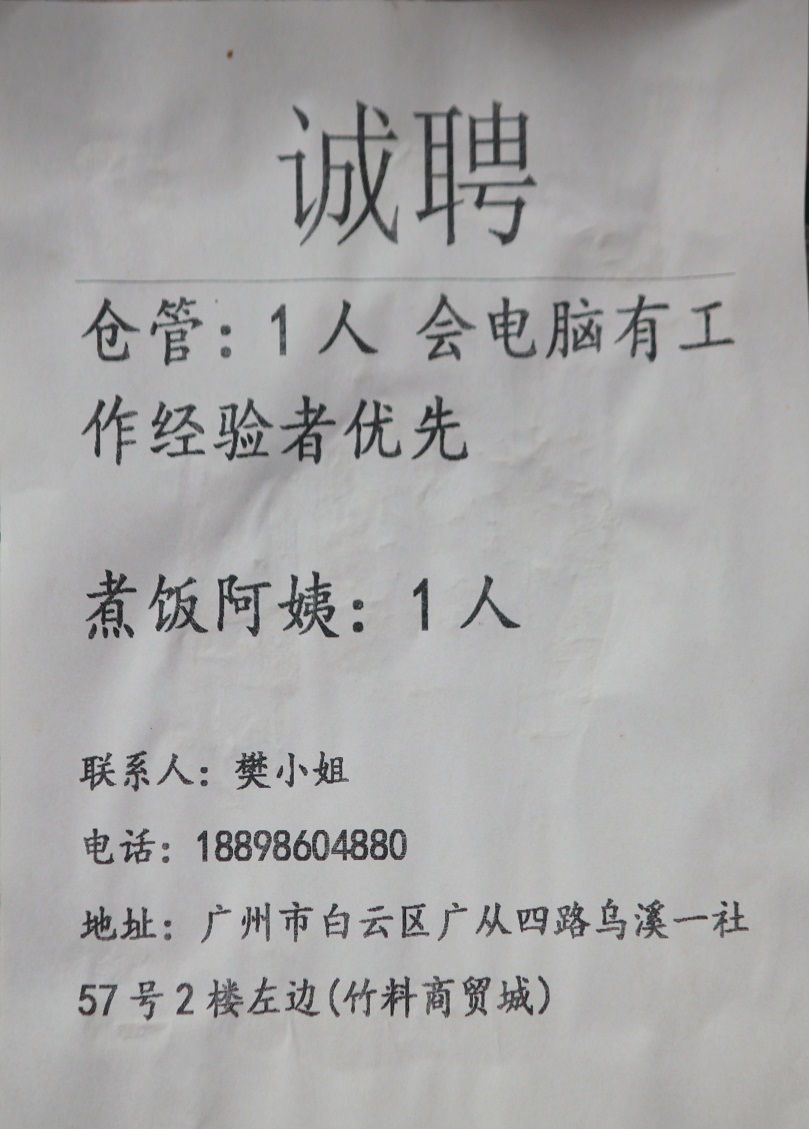 诚聘
仓管：1人 会电脑有工
作经验者优先
煮饭阿姨：1人
联系人：樊小姐
电话：18898604880
地址：广州市白云区广从四路乌溪一社
57号2楼左边(竹料商贸城)